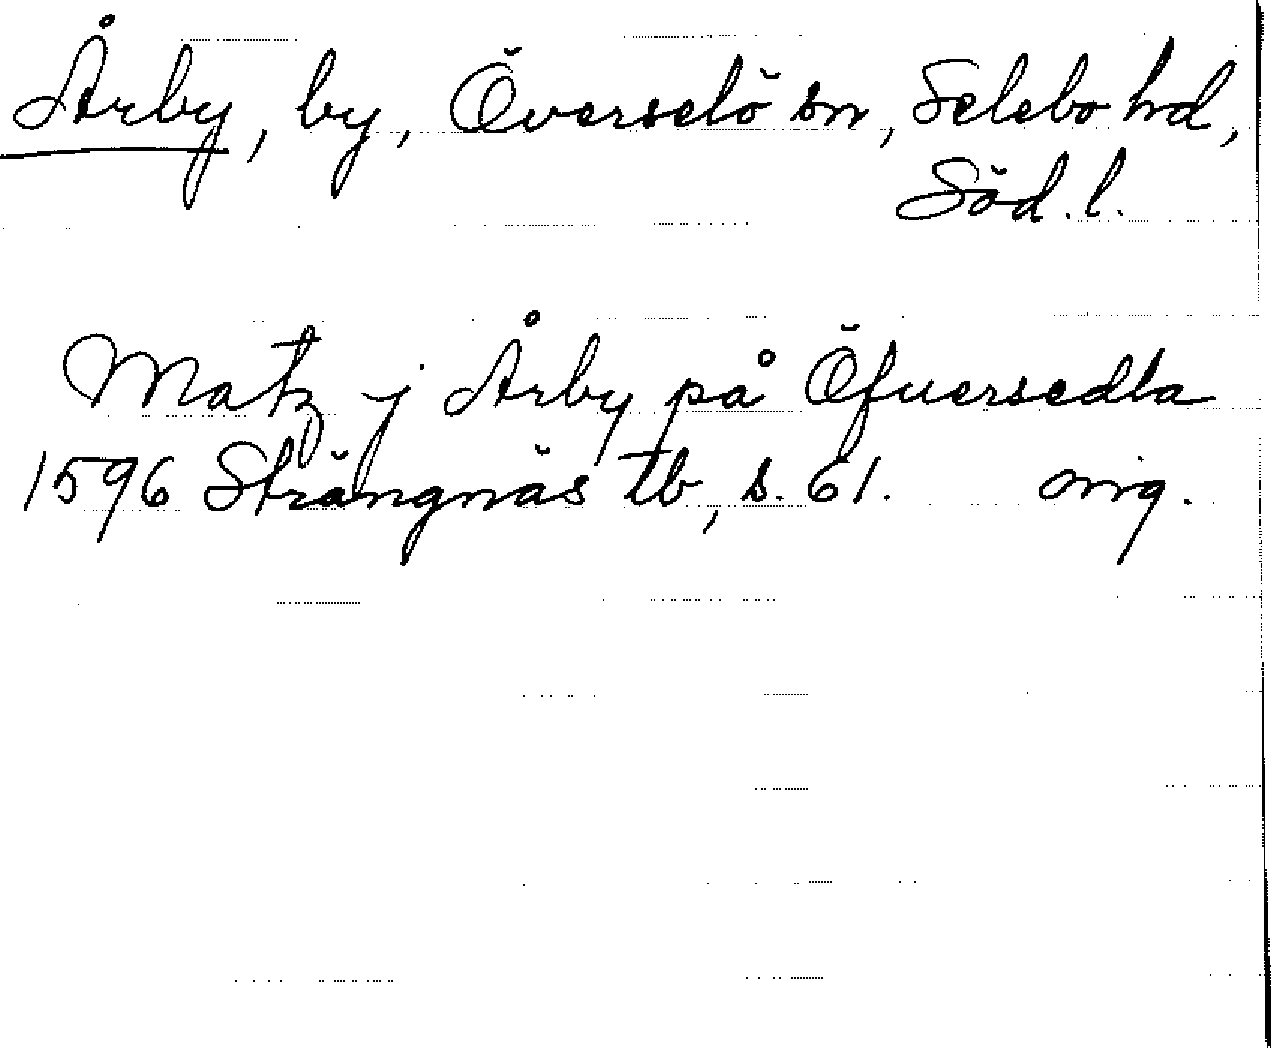 Årby, by, Överselö sn, Selebo hd,
Söd. l.
Matz j Årby på Öfuersedla
1596 Strängnäs tb, s. 61. orig.